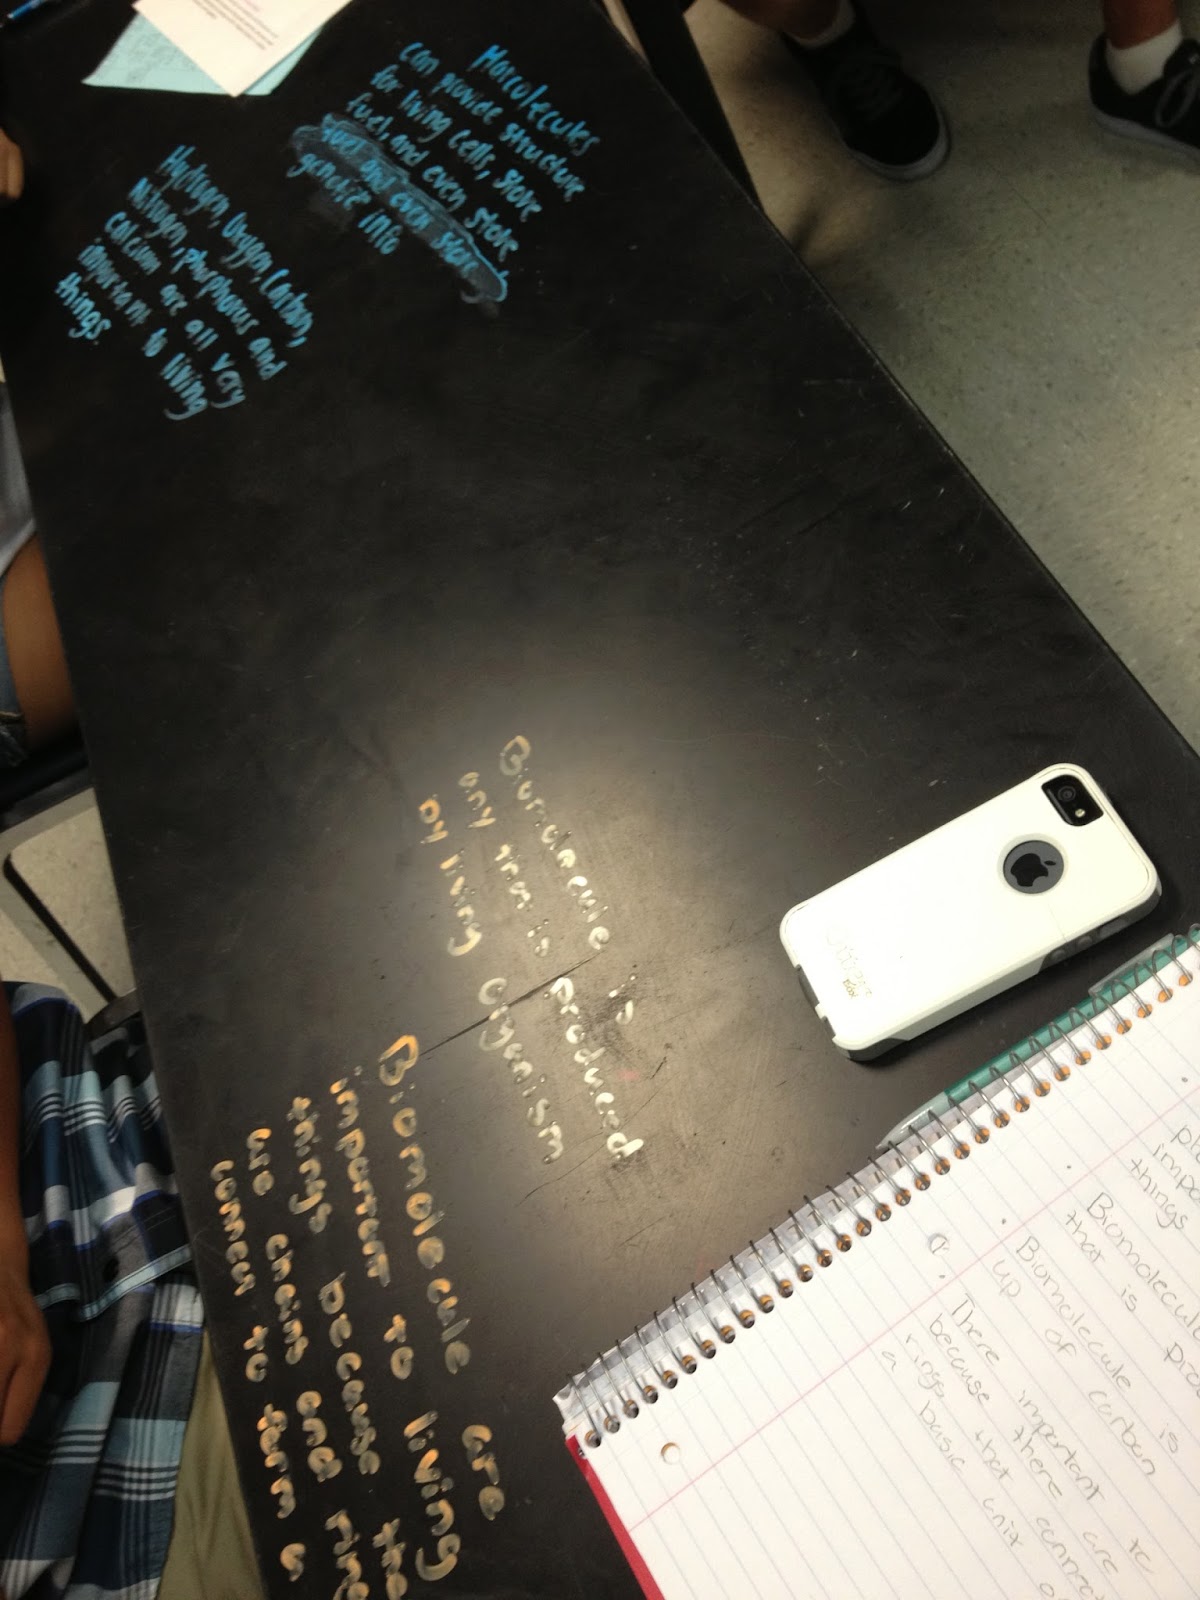 Marcolecules
can provide structure
for living cells, store
fuel, and even store
fuel and even store
genetic info
Hydrogen, Oxygen, Carbon,
Nitrogen, phosphorus and
calcium are all very
important to living
things.
Biomolecule is
any that is produced
by living organism
Biomolecule are
important to living
things because the
are chains and
connect to form
things
Biomolecule
that is
Biomolecule is
up of carbon
There important
because there are
rings that connect
a basic unit